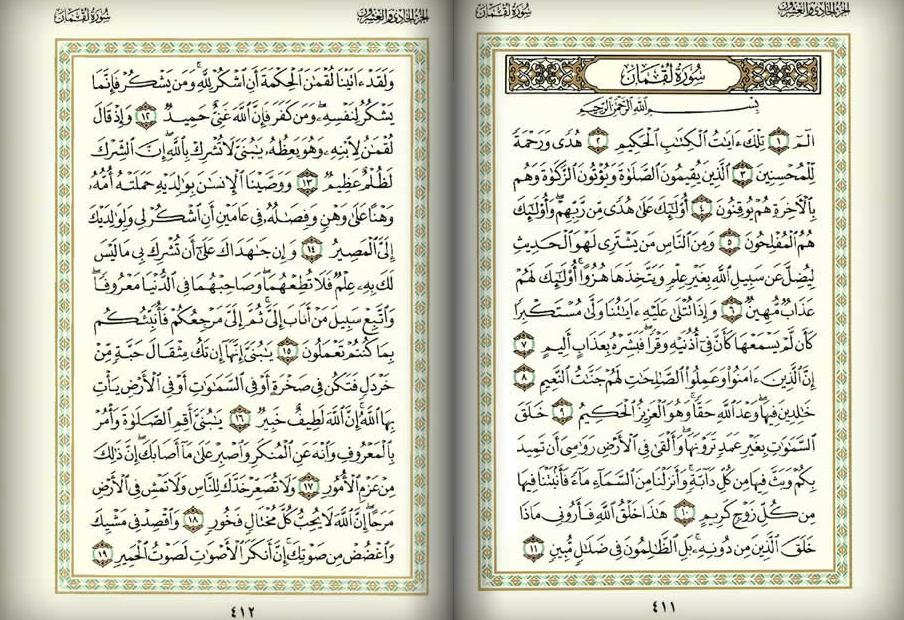 الجزء الحادي والعشرون
سورة لقمان
سُورَةُ لُقْمَان
بِسْمِ اللَّهِ الرَّحْمَٰنِ الرَّحِيمِ
الٓمٓ ١ تِلْكَ ءَايَٰتُ ٱلْكِتَٰبِ ٱلْحَكِيمِ ٢ هُدًى وَرَحْمَةً
لِّلْمُحْسِنِينَ ٣ ٱلَّذِينَ يُقِيمُونَ ٱلصَّلَوٰةَ وَيُؤْتُونَ ٱلزَّكَوٰةَ وَهُم
بِٱلْءَاخِرَةِ هُمْ يُوقِنُونَ ٤ أُو۟لَٰٓئِكَ عَلَىٰ هُدًى مِّن رَّبِّهِمْ ۖ وَأُو۟لَٰٓئِكَ
هُمُ ٱلْمُفْلِحُونَ ٥ وَمِنَ ٱلنَّاسِ مَن يَشْتَرِى لَهْوَ ٱلْحَدِيثِ
لِيُضِلَّ عَن سَبِيلِ ٱللَّهِ بِغَيْرِ عِلْمٍ وَيَتَّخِذَهَا هُزُوًا ۚ أُو۟لَٰٓئِكَ لَهُمْ
عَذَابٌ مُّهِينٌ ٦ وَإِذَا تُتْلَىٰ عَلَيْهِ ءَايَٰتُنَا وَلَّىٰ مُسْتَكْبِرًا
كَأَن لَّمْ يَسْمَعْهَا كَأَنَّ فِىٓ أُذُنَيْهِ وَقْرًا ۖ فَبَشِّرْهُ بِعَذَابٍ أَلِيمٍ ٧
إِنَّ ٱلَّذِينَ ءَامَنُوا۟ وَعَمِلُوا۟ ٱلصَّٰلِحَٰتِ لَهُمْ جَنَّٰتُ ٱلنَّعِيمِ ٨
خَٰلِدِينَ فِيهَا ۖ وَعْدَ ٱللَّهِ حَقًّا ۚ وَهُوَ ٱلْعَزِيزُ ٱلْحَكِيمُ ٩ خَلَقَ
ٱلسَّمَٰوَٰتِ بِغَيْرِ عَمَدٍ تَرَوْنَهَا ۖ وَأَلْقَىٰ فِى ٱلْأَرْضِ رَوَٰسِىَ أَن تَمِيدَ
بِكُمْ وَبَثَّ فِيهَا مِن كُلِّ دَآبَّةٍ ۚ وَأَنزَلْنَا مِنَ ٱلسَّمَآءِ مَآءً فَأَنۢبَتْنَا فِيهَا
مِن كُلِّ زَوْجٍ كَرِيمٍ ١٠ هَٰذَا خَلْقُ ٱللَّهِ فَأَرُونِى مَاذَا
خَلَقَ ٱلَّذِينَ مِن دُونِهِۦ ۚ بَلِ ٱلظَّٰلِمُونَ فِى ضَلَٰلٍ مُّبِينٍ ١١
٤١١
الجزء الحادي والعشرون
سورة لقمان
وَلَقَدْ ءَاتَيْنَا لُقْمَٰنَ ٱلْحِكْمَةَ أَنِ ٱشْكُرْ لِلَّهِ ۚ وَمَن يَشْكُرْ فَإِنَّمَا
يَشْكُرُ لِنَفْسِهِۦ ۖ وَمَن كَفَرَ فَإِنَّ ٱللَّهَ غَنِىٌّ حَمِيدٌ ١٢ وَإِذْ قَالَ
لُقْمَٰنُ لِٱبْنِهِۦ وَهُوَ يَعِظُهُۥ يَٰبُنَىَّ لَا تُشْرِكْ بِٱللَّهِ ۖ إِنَّ ٱلشِّرْكَ
لَظُلْمٌ عَظِيمٌ ١٣ وَوَصَّيْنَا ٱلْإِنسَٰنَ بِوَٰلِدَيْهِ حَمَلَتْهُ أُمُّهُۥ
وَهْنًا عَلَىٰ وَهْنٍ وَفِصَٰلُهُۥ فِى عَامَيْنِ أَنِ ٱشْكُرْ لِى وَلِوَٰلِدَيْكَ
إِلَىَّ ٱلْمَصِيرُ ١٤ وَإِن جَٰهَدَاكَ عَلَىٰٓ أَن تُشْرِكَ بِى مَا لَيْسَ
لَكَ بِهِۦ عِلْمٌ فَلَا تُطِعْهُمَا ۖ وَصَاحِبْهُمَا فِى ٱلدُّنْيَا مَعْرُوفًا ۖ
وَٱتَّبِعْ سَبِيلَ مَنْ أَنَابَ إِلَىَّ ۚ ثُمَّ إِلَىَّ مَرْجِعُكُمْ فَأُنَبِّئُكُم
بِمَا كُنتُمْ تَعْمَلُونَ ١٥ يَٰبُنَىَّ إِنَّهَآ إِن تَكُ مِثْقَالَ حَبَّةٍ مِّنْ
خَرْدَلٍ فَتَكُن فِى صَخْرَةٍ أَوْ فِى ٱلسَّمَٰوَٰتِ أَوْ فِى ٱلْأَرْضِ يَأْتِ
بِهَا ٱللَّهُ ۚ إِنَّ ٱللَّهَ لَطِيفٌ خَبِيرٌ ١٦ يَٰبُنَىَّ أَقِمِ ٱلصَّلَوٰةَ وَأْمُرْ
بِٱلْمَعْرُوفِ وَٱنْهَ عَنِ ٱلْمُنكَرِ وَٱصْبِرْ عَلَىٰ مَآ أَصَابَكَ ۖ إِنَّ ذَٰلِكَ
مِنْ عَزْمِ ٱلْأُمُورِ ١٧ وَلَا تُصَعِّرْ خَدَّكَ لِلنَّاسِ وَلَا تَمْشِ فِى ٱلْأَرْضِ
مَرَحًا ۖ إِنَّ ٱللَّهَ لَا يُحِبُّ كُلَّ مُخْتَالٍ فَخُورٍ ١٨ وَٱقْصِدْ فِى مَشْيِكَ
وَٱغْضُضْ مِن صَوْتِكَ ۚ إِنَّ أَنكَرَ ٱلْأَصْوَٰتِ لَصَوْتُ ٱلْحَمِيرِ ١٩
٤١٢